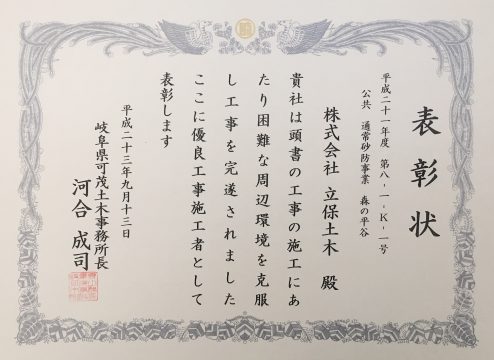 表彰状
平成二十一年度 第八-一-K-一号
公共 通常砂防事業 森の平谷
株式会社 立保土木 殿
貴社は頭書の工事の施工にあ
たり困難な周辺環境を克服
し工事を完遂されました
ここに優良工事施工者として
表彰します
平成二十三年九月十三日
岐阜県可茂土木事務所長
河合 成司